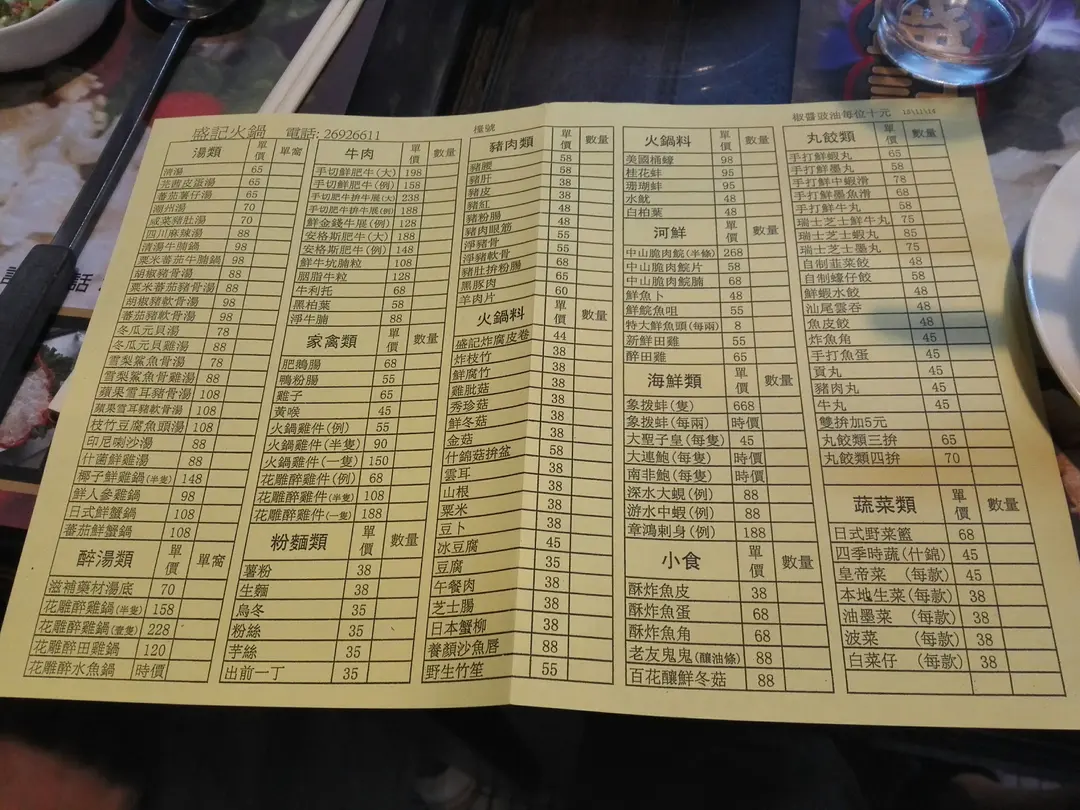 盛記火鍋 電話: 26926611
檯號
椒醬豉油每位十元
湯類 單價 單窩
清湯 65
芫茜皮蛋湯 65
蕃茄薯仔湯 65
潮州湯 70
咸菜豬肚湯 70
四川麻辣湯 88
清湯牛腩鍋 98
粟米蕃茄牛腩鍋 98
胡椒豬骨湯 88
粟米蕃茄豬骨湯 88
胡椒豬軟骨湯 98
蕃茄豬軟骨湯 98
冬瓜元貝湯 78
冬瓜元貝雞湯 88
雪梨鯊魚骨湯 78
雪梨鯊魚骨雞湯 88
蘋果雪耳豬骨湯 108
蘋果雪耳豬軟骨湯 108
枝竹豆腐魚頭湯 108
印尼喇沙湯 88
什菌鮮雞湯 88
椰子鮮雞鍋(半隻) 148
鮮人參雞鍋 98
日式鮮蟹鍋 108
蕃茄鮮蟹鍋 108
醉湯類 單價 單窩
滋補藥材湯底 70
花雕醉雞鍋(半隻) 158
花雕醉雞鍋(壹隻) 228
花雕醉田雞鍋 120
花雕醉水魚鍋 時價
牛肉 單價 數量
手切鮮肥牛(大) 198
手切鮮肥牛(例) 158
手切肥牛拼牛展(大) 238
手切肥牛拼牛展(例) 188
鮮金錢牛展(例) 128
安格斯肥牛(大) 188
安格斯肥牛(例) 148
鮮牛坑腩粒 108
胭脂牛粒 128
牛利托 68
黑柏葉 58
淨牛腩 88
家禽類 單價 數量
肥鵝腸 68
鴨粉腸 55
雞子 65
黃喉 45
火鍋雞件(例) 55
火鍋雞件(半隻) 90
火鍋雞件(一隻) 150
花雕醉雞件(例) 68
花雕醉雞件(半隻) 108
花雕醉雞件(一隻) 188
粉麵類 單價 數量
薯粉 38
生麵 38
烏冬 35
粉絲 35
芋絲 35
出前一丁 35
豬肉類 單價 數量
豬腰 58
豬肝 38
豬皮 38
豬紅 48
豬粉腸 48
豬肉眼筋 55
淨豬骨 55
淨豬軟骨 68
豬肚拚粉腸 68
黑豚肉 65
羊肉片 60
火鍋料 單價 數量
盛記炸腐皮卷 44
炸枝竹 38
鮮腐竹 38
雞肶菇 38
秀珍菇 38
鮮冬菇 38
金菇 38
什錦菇拚盆 58
雲耳 38
山根 38
粟米 38
豆卜 38
冰豆腐 45
豆腐 35
午餐肉 38
芝士腸 38
日本蟹柳 38
養顏沙魚唇 88
野生竹笙 55
火鍋料 單價 數量
美國桶蠔 98
桂花蚌 95
珊瑚蚌 95
水魷 48
白柏葉 48
河鮮 單價 數量
中山脆肉鯇(半條) 268
中山脆肉鯇片 58
中山脆肉鯇腩 68
鮮魚卜 48
鮮鯇魚咀 55
特大鮮魚頭(每兩) 8
新鮮田雞 55
醉田雞 65
海鮮類 單價 數量
象拔蚌(隻) 668
象拔蚌(每兩) 時價
大聖子皇(每隻) 45
大連鮑(每隻) 時價
南非鮑(每隻) 時價
深水大蜆(例) 88
游水中蝦(例) 88
章鴻刺身(例) 188
小食 單價 數量
酥炸魚皮 38
酥炸魚蛋 68
酥炸魚角 68
老友鬼鬼(釀油條) 88
百花釀鮮冬菇 88
丸餃類 單價 數量
手打鮮蝦丸 65
手打鮮墨丸 58
手打鮮中蝦滑 78
手打鮮墨魚滑 68
手打鮮牛丸 58
瑞士芝士鮮牛丸 75
瑞士芝士蝦丸 85
瑞士芝士墨丸 75
自制韮菜餃 58
自制蠔仔餃 58
鮮蝦水餃 48
汕尾雲吞 48
魚皮餃 48
炸魚角 45
手打魚蛋 45
貢丸 45
豬肉丸 45
牛丸 45
雙拚加5元
丸餃類三拚 65
丸餃類四拚 70
蔬菜類 單價 數量
日式野菜籃 68
四季時蔬(什錦) 45
皇帝菜 (每款) 45
本地生菜(每款) 38
油墨菜 (每款) 38
菠菜 (每款) 38
白菜仔 (每款) 38